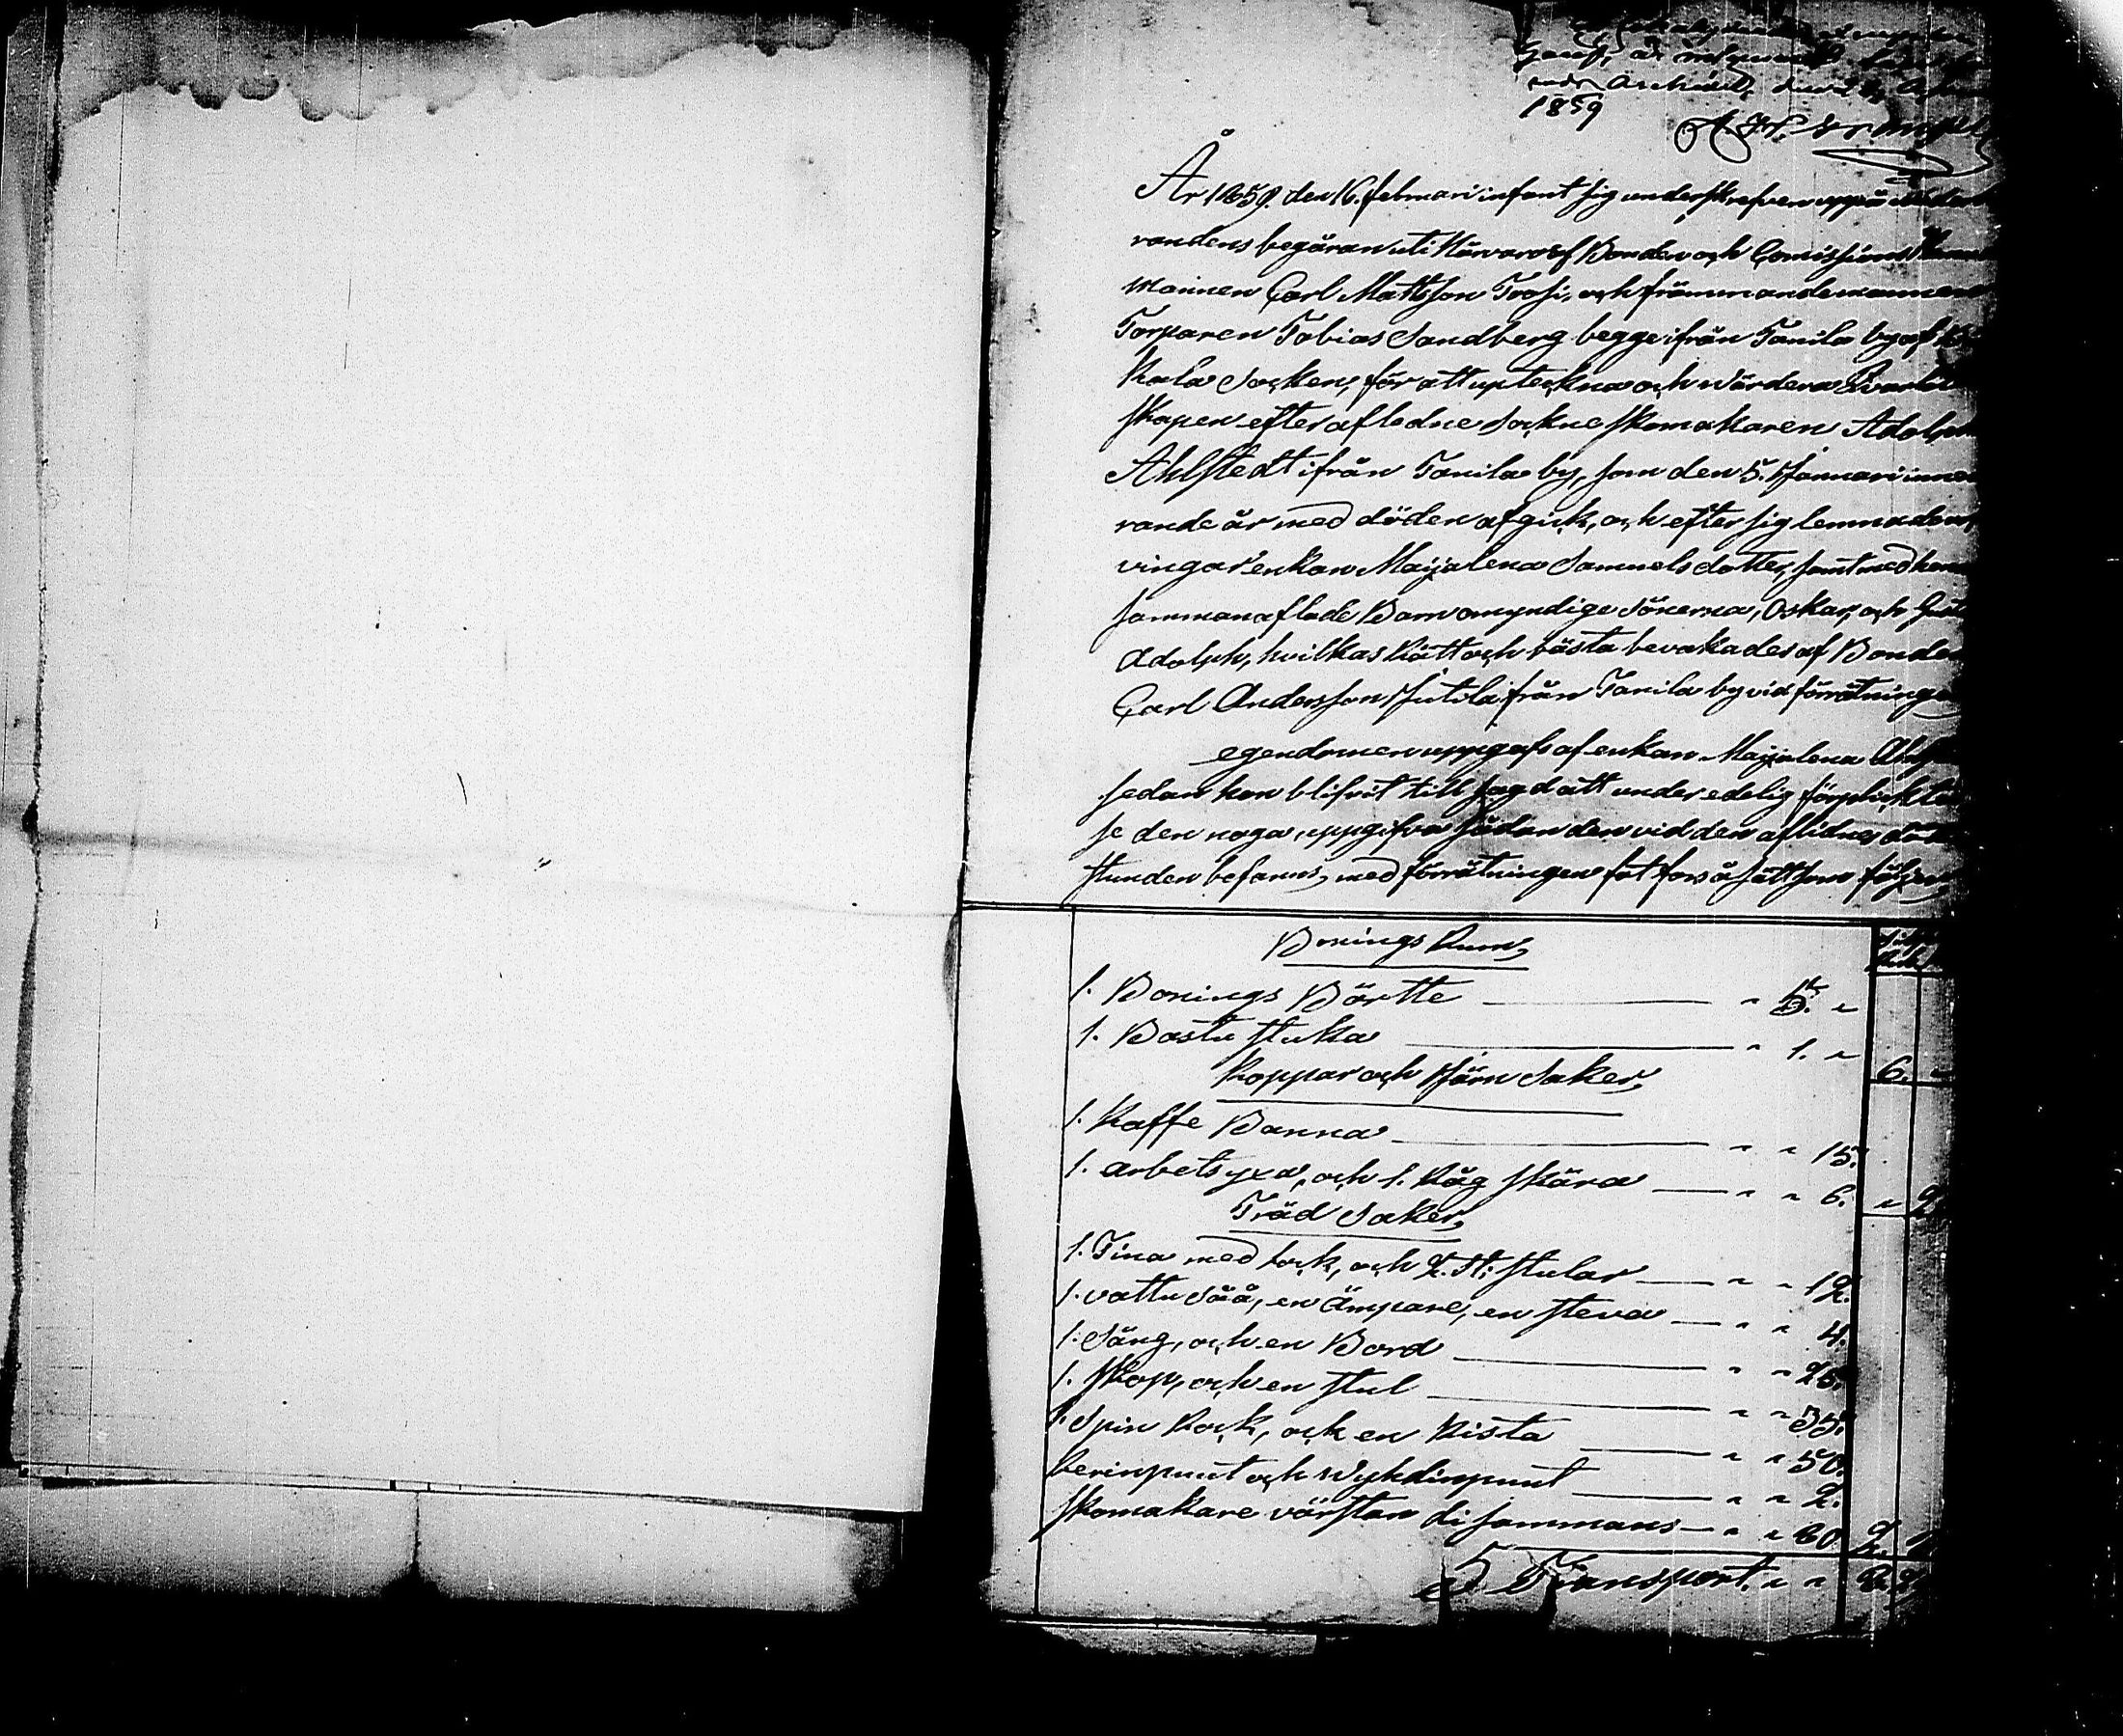 1859
År 1859. den 16. februari infant sig underskrefven uppå
randens begäran uti Närvaro af Bonden och Comissions
mannen Carl Mattsson Trosi, och främmandemannen
Torparen Tobias Sandberg begge ifrån Tanila by af
Kala Socken, för att upteckna och värdera Qvarlåten
skapen efter afledne Sockne skomakaren Adolph
Ahlstedt ifrån Tanila by, som den 5. Januari inne
rande år med döden afgick, och efter sig lemnade
enkan Maijalena Samuels dotter, samt med henne
sammanaflade Barn omyndige Sönerna, Oskar, och
Adolph, hvilkas Rätt och bästa bevakades af Bonden
Carl Andersson Jutila från Tanila by vid förrätningen
egendomen uppgafs af enkan Maijalena
sedan hon blifvit till sagd att under edelig förplicktel
se den noga, uppgifva sådan den vid den aflidnes
stunden befanns, med förrätningen för så sätt som följer,
Bonings Rum,
1. Bonings Pörtte 5. "
1. Bastu stuka " 1. "
Koppar och Järn Saker, 6.
1. Kaffe Panna " " 15.
1. arbets yxa, och 1. Råg skära " " 6.
Träd Saker,
1. Tina med lock, och 2. St: stular " " 12.
1. vattu Såå, en Ämpare, en steva " " 4.
1. Säng, och en Bord " " 25.
1. Skop, och en stul " " 35.
1. Spin Rock, och en Kista " " 50.
berinpuut och Wyhdinpuut " " 2.
Skomakare värstan di sammans " " 60. 2.
Transport. " "